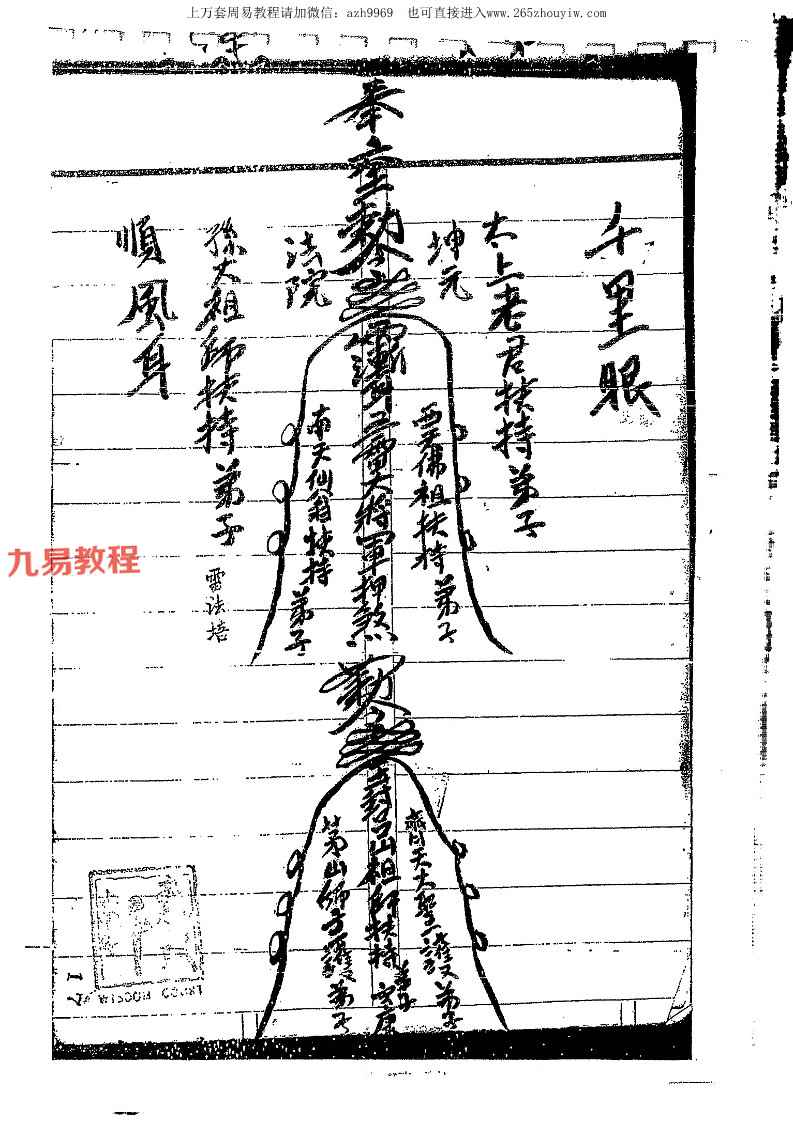 上万套周易教程请加微信：azh9969　也可直接进入www.265zhouyiw.com
千里眼
太上老君扶持弟子
坤元
奉
勅
法院
孫大祖師扶持弟子
雷法培
順風耳
西天佛祖扶持弟子
三曹大將軍押煞
南天仙翁扶持弟子
九易教程
勅
齊天大聖護弟子
封呂山祖師扶持弟子安康
茅山師主護弟子